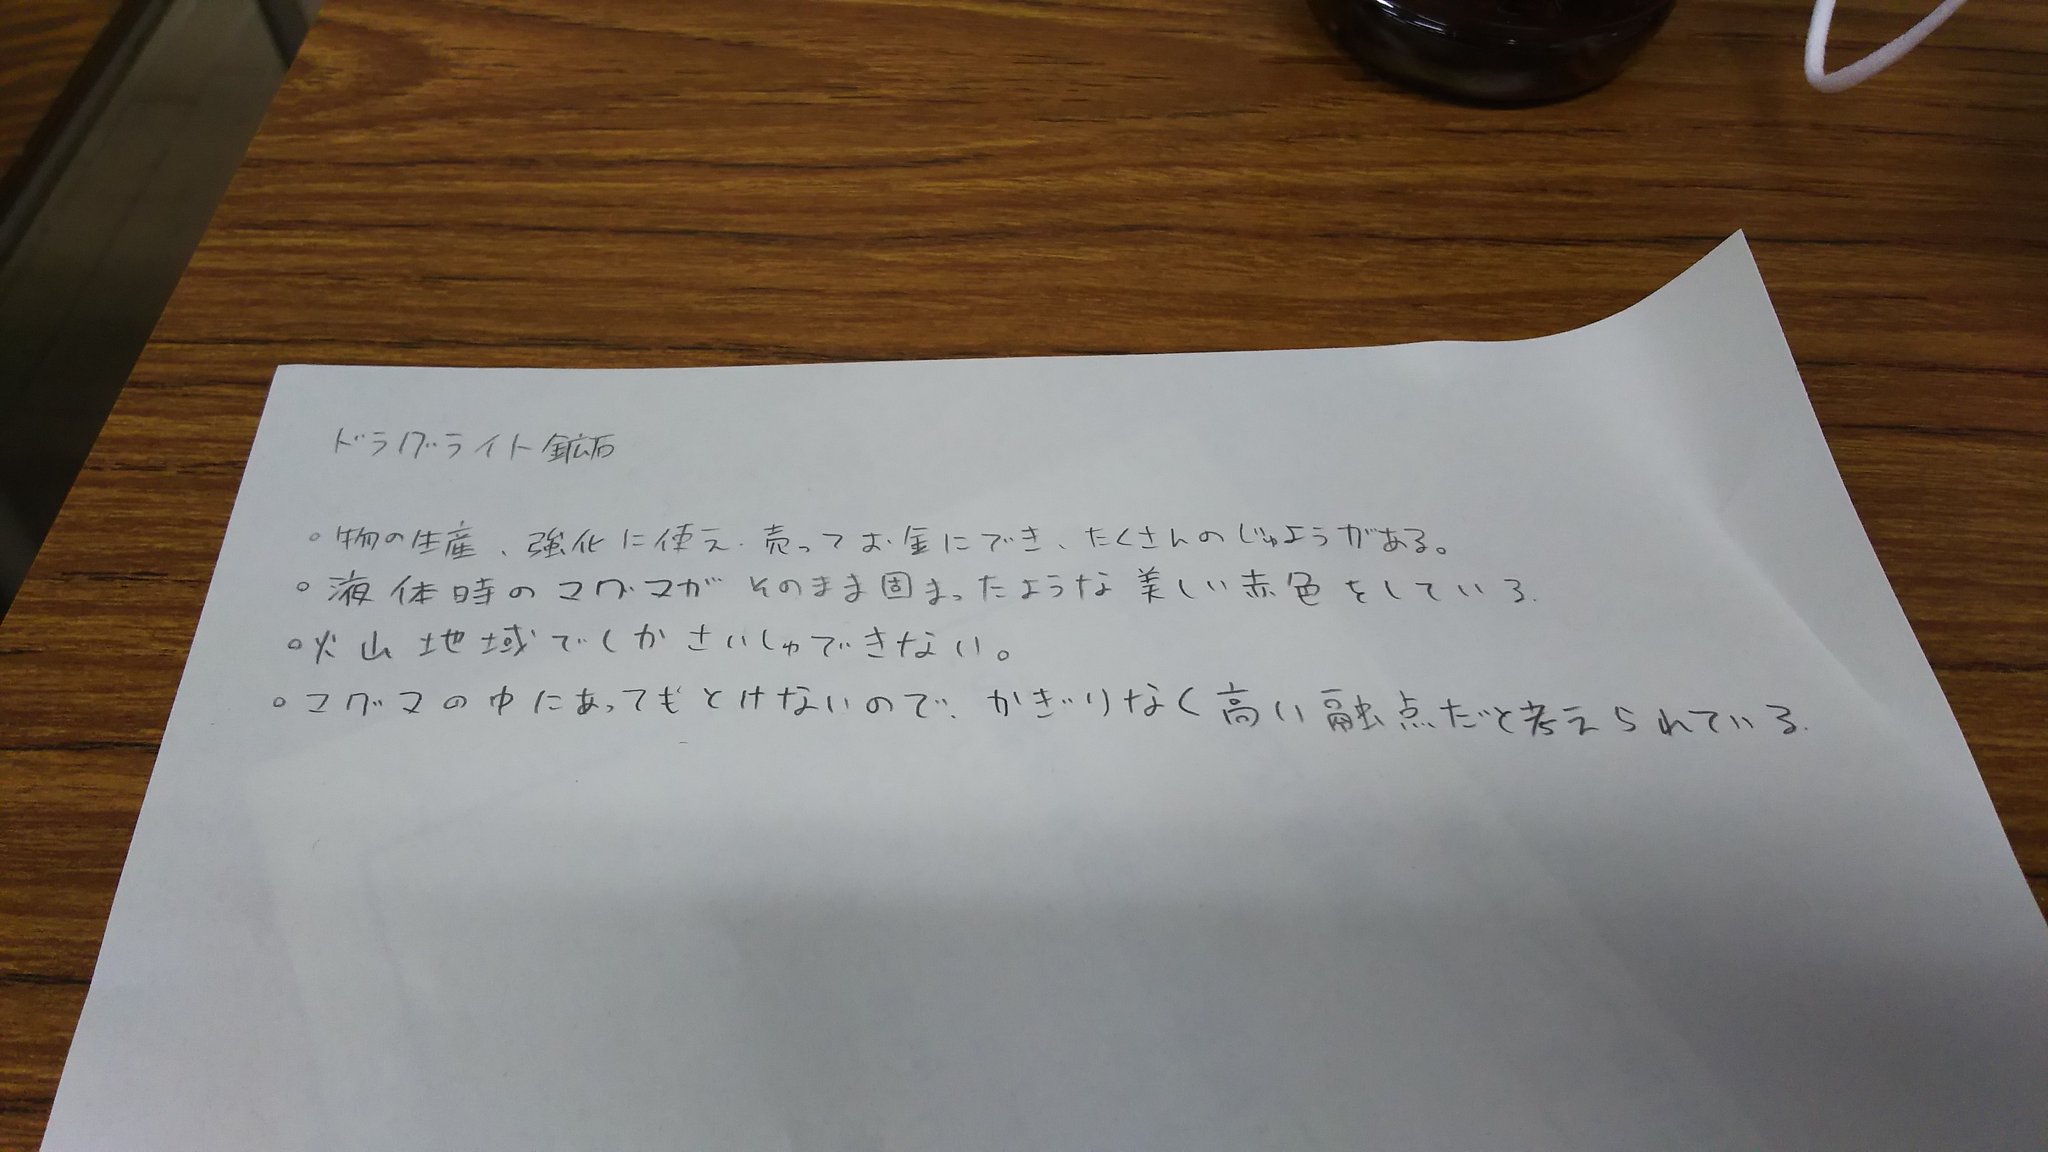 ドラグライト鉱石
○物の生産、強化に使え、売ってお金にでき、たくさんのじゅようがある。
○液体時のマグマがそのまま固まったような美しい赤色をしている.
○火山地域でしかさいしゅできない。
○マグマの中にあってもとけないので、かぎりなく高い融点だと考えられている.